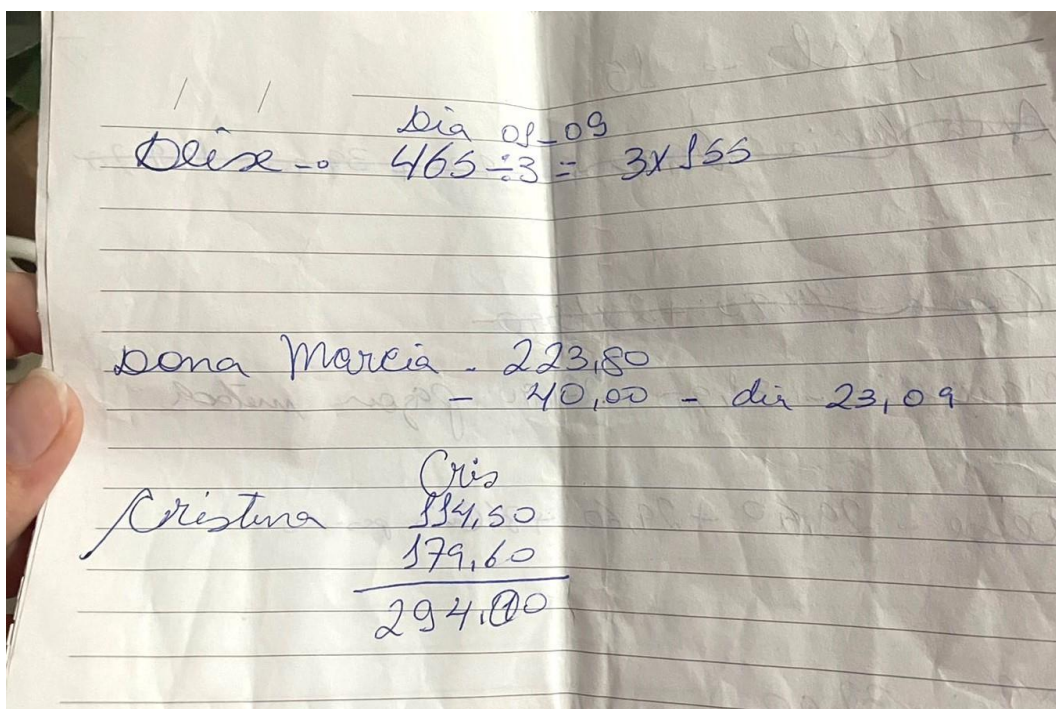 / /
Dia 01_09
Deise - 465÷3 = 3x155
Dona Marcia - 223,80
- 40,00 - dia 23,09
Cris
Cristina 114,50
179,60
294,10